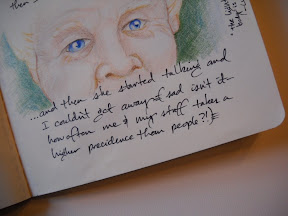 then s
...and then she started talking and
I couldn't get away. of sad isn't it-
how often me & my stuff takes a
higher precidence than people?!)